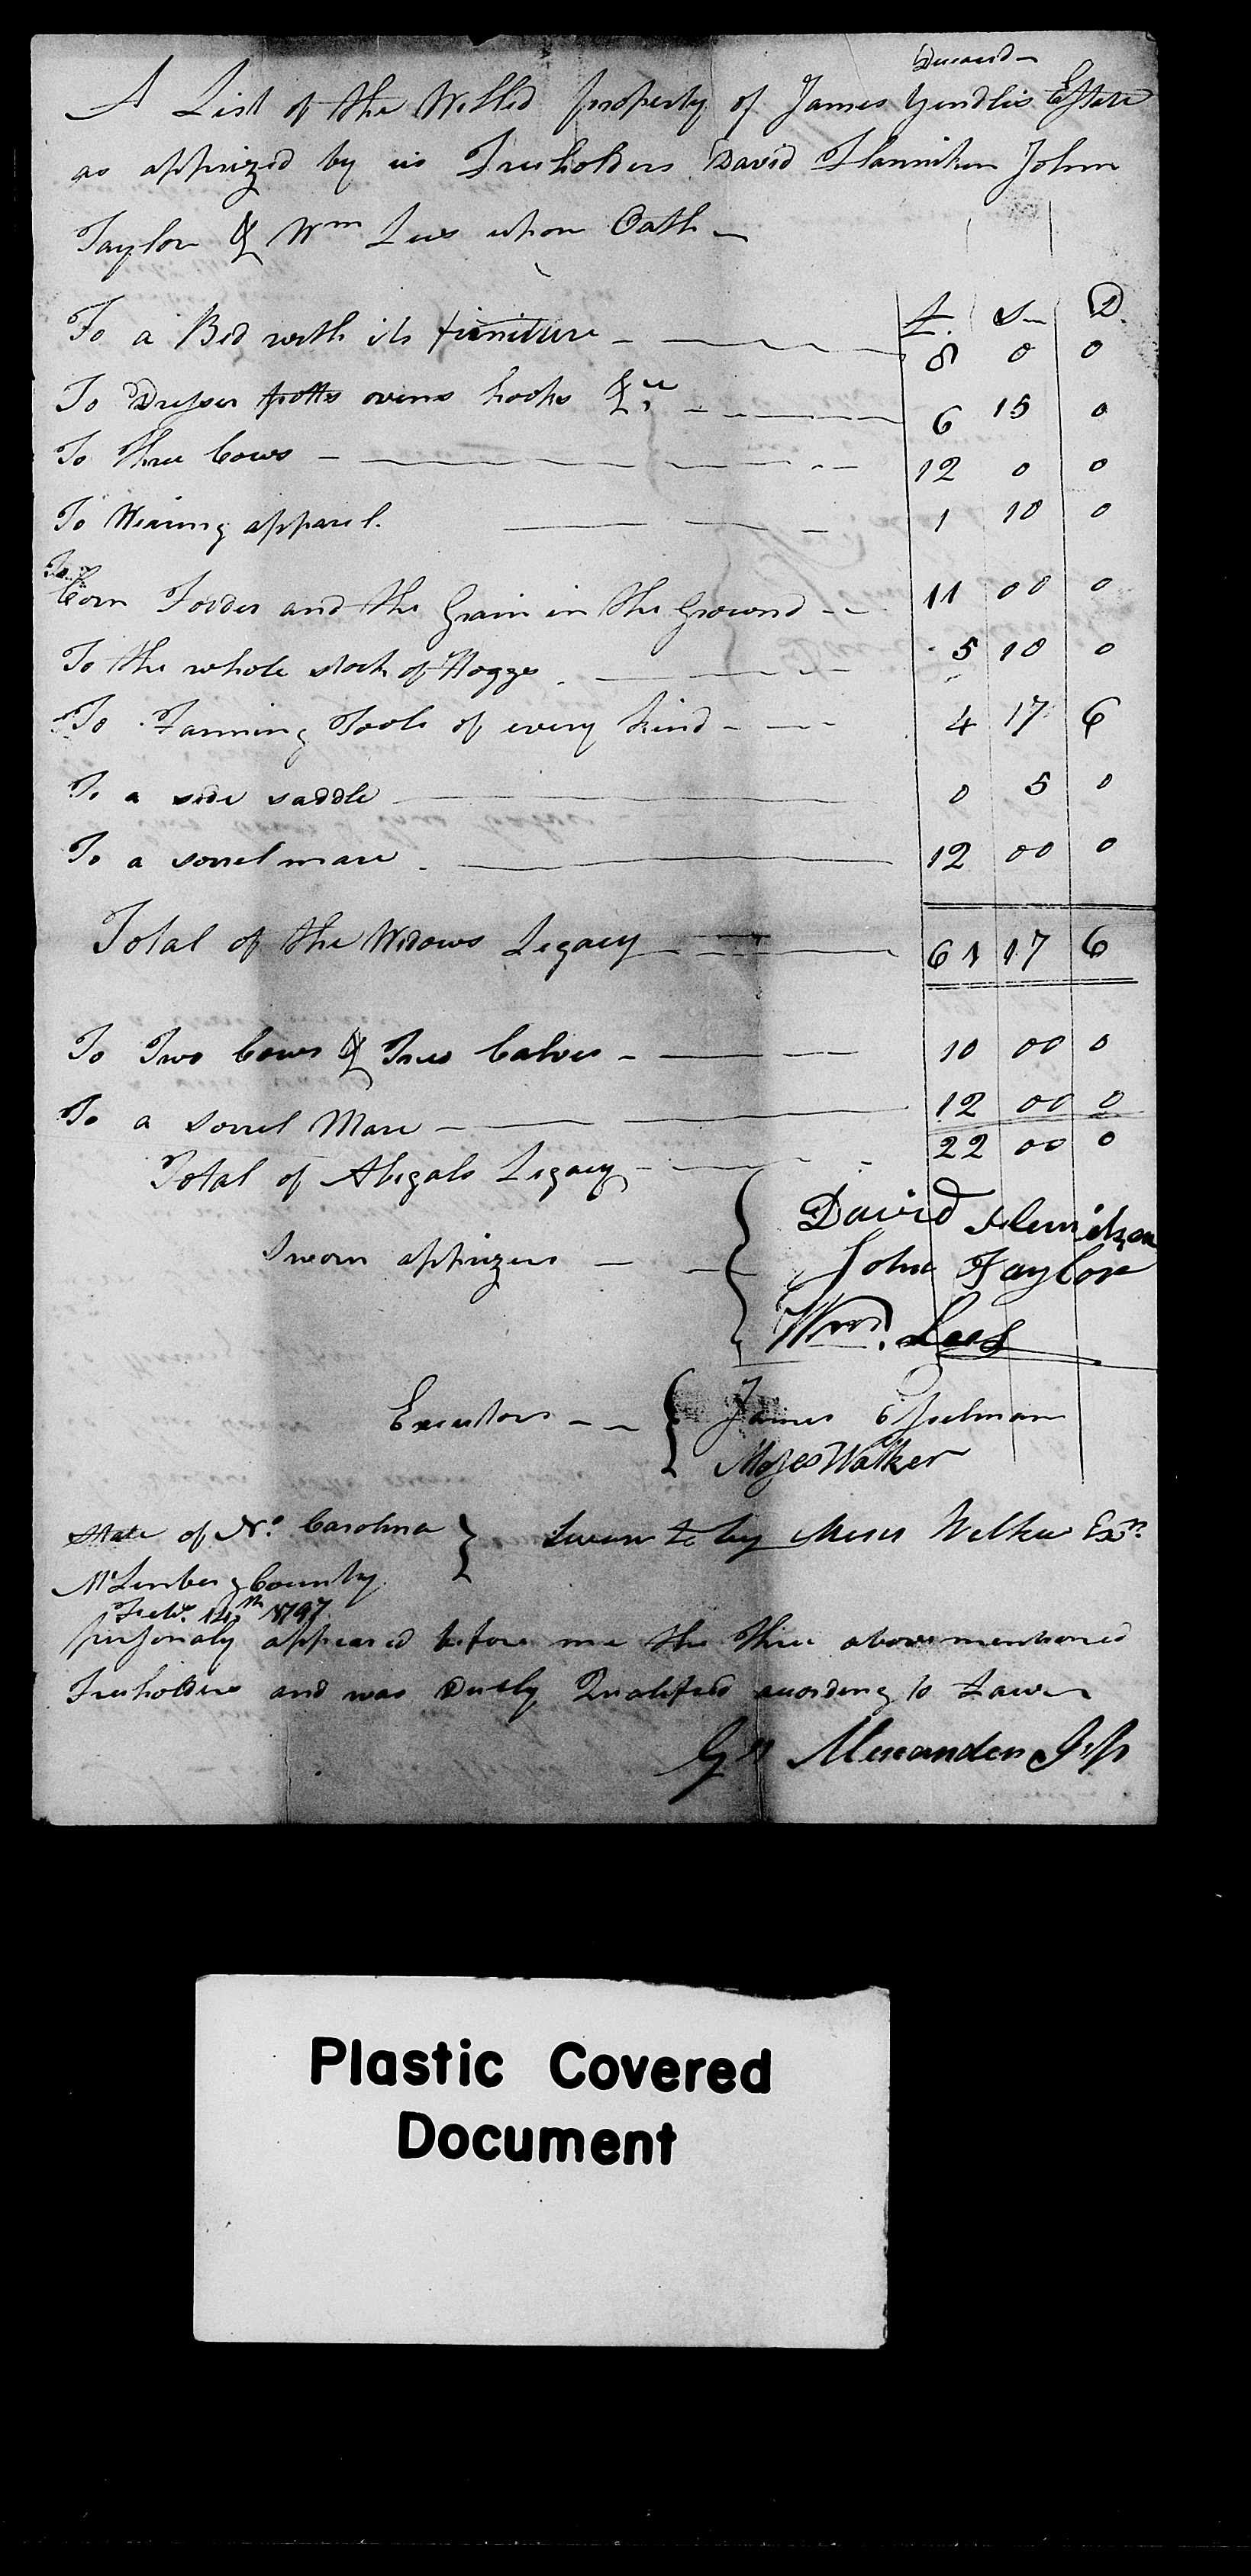 Deceasd
A List of the Willed property of James Yendlis Estate
as apprized by us Freeholders David Flanniken John
Taylor & Wm Lees upon Oath
£. S D.
To a Bed with its furniture 8 0 0
To Dresser potts ovens hooks &c 6 15 0
To three Cows 12 0 0
To Wearing apparel. 1 10 0
To Corn Fodder and the Grain in the Ground 11 00 0
To the whole stock of Hoggs 5 10 0
To Farming Tools of every kind 4 17 6
To a side saddle 0 5 0
To a sorrel mare 12 00 0
Total of the Widows Legacy 61 17 6
To Two Cows & Two Calves 10 00 0
To a Sorrel Mare 12 00 0
Total of Abigals Legacy 22 00 0
David Flenniken
Sworn apprizers John Taylor
Wm. Lees
Executors James Spelman
Moses Walker
State of No. Carolina } Sworn to by Moses Walker Exr.
McLenberg County
Feby. 14th 1797
personaly appeared before me the three above mentioned
Freeholders and was Duely Qualified acording to Law
Alexander JP
Plastic Covered
Document